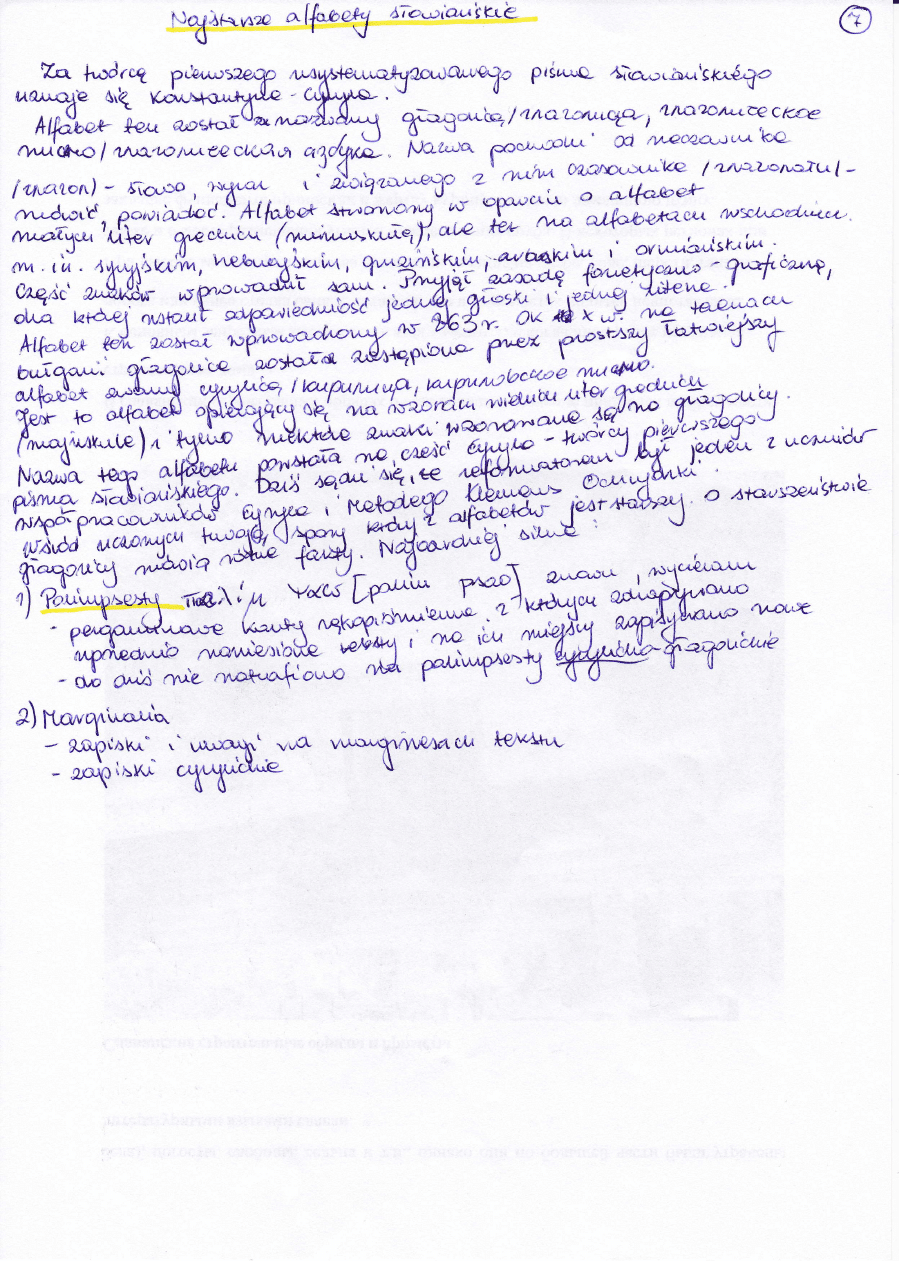 Najstarsze alfabety słowiańskie
7
Za twórcę pierwszego usystematyzowanego pisma słowiańskiego
uznaje się Konstantyna - Cyryla.
Alfabet ten został nazwany głagolicą/глаголица, глаголическое
письмо/глаголическая азбука. Nazwa pochodzi od rzeczownika
/глагол/ - słowo, wyraz i związanego z nim czasownika /глаголати/-
mówić, powiadać. Alfabet stworzony w oparciu o alfabet
małych liter greckich (minuskułą), ale też na alfabetach wschodnich.
m. in. syryjskim, hebrajskim, gruzińskim, arabskim i ormiańskim.
Część znaków wprowadził sam. Przyjął zasadę fonetyczno - graficzną,
dla której ustalił odpowiedniość jednej głoski i jednej litera.
Alfabet ten został wprowadzony w 863 r. Ok X w. na terenach
Bułgarii głagolica została zastąpiona przez prostszy łatwiejszy
alfabet zwany cyrylicą /кириллица, кирилловское письмо.
Jest to alfabet opierający się na wzorach wielkich liter greckich
(majuskule) i tylko niektóre znaki wzorowane są na głagolicy.
Nazwa tego alfabetu powstała na cześć Cyryla - twórcy pierwszego
pisma słowiańskiego. Dziś sądzi się, że reformatorem był jeden z uczniów
współpracowników Cyryla i Metodego Klemens Ochrydzki.
Wśród uczonych trwają spory który z alfabetów jest starszy. O starszeństwie
głagolicy mówią różne fakty. Najbardziej silne:
1) Palimpsesty [palin psao] znów, wycieram
- pergaminowe karty rękopiśmienne z których zdrapywano
uprzednio naniesione teksty i na ich miejscu zapisywano nowe
- do dziś nie natrafiono na palimpsesty cyrylicko-głagolickie
2) Marginalia
- zapiski i uwagi na marginesach tekstu
- zapiski cyrylickie